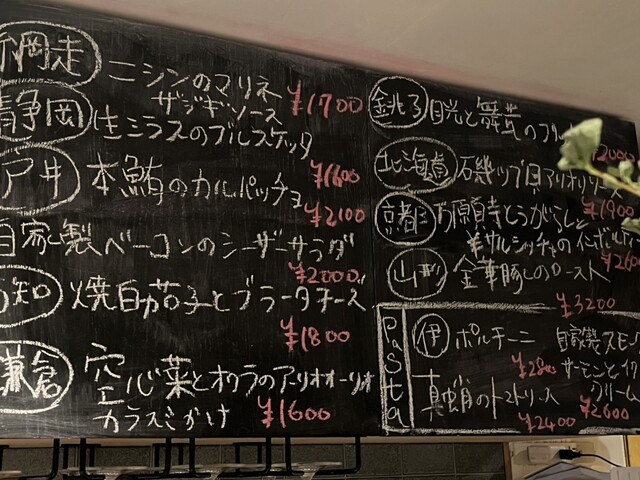 網走
ニシンのマリネ
ザジキソース ¥1700
静岡
生シラスのブルスケッタ
¥1600
戸井 本鮪のカルパッチョ
¥2100
自家製ベーコンのシーザーサラダ
¥2000
高知 焼白茄子とブラータチーズ
¥1800
鎌倉 空心菜とオクラのアーリオオーリオ
カラスミかけ ¥1600
銚子 目光と舞茸の
¥2000
北海道 石磯ツブ貝アリオリソース
¥1900
京都 万願寺とうがらしと
サルシッチャのインボルティーニ
¥2600
山形 金華豚しのロースト
¥3200
Pasta
伊 ポルチーニ
¥280
真蛸のトマトソース
¥2400
自家製スモーク
サーモンとイクラ
クリーム
¥2600